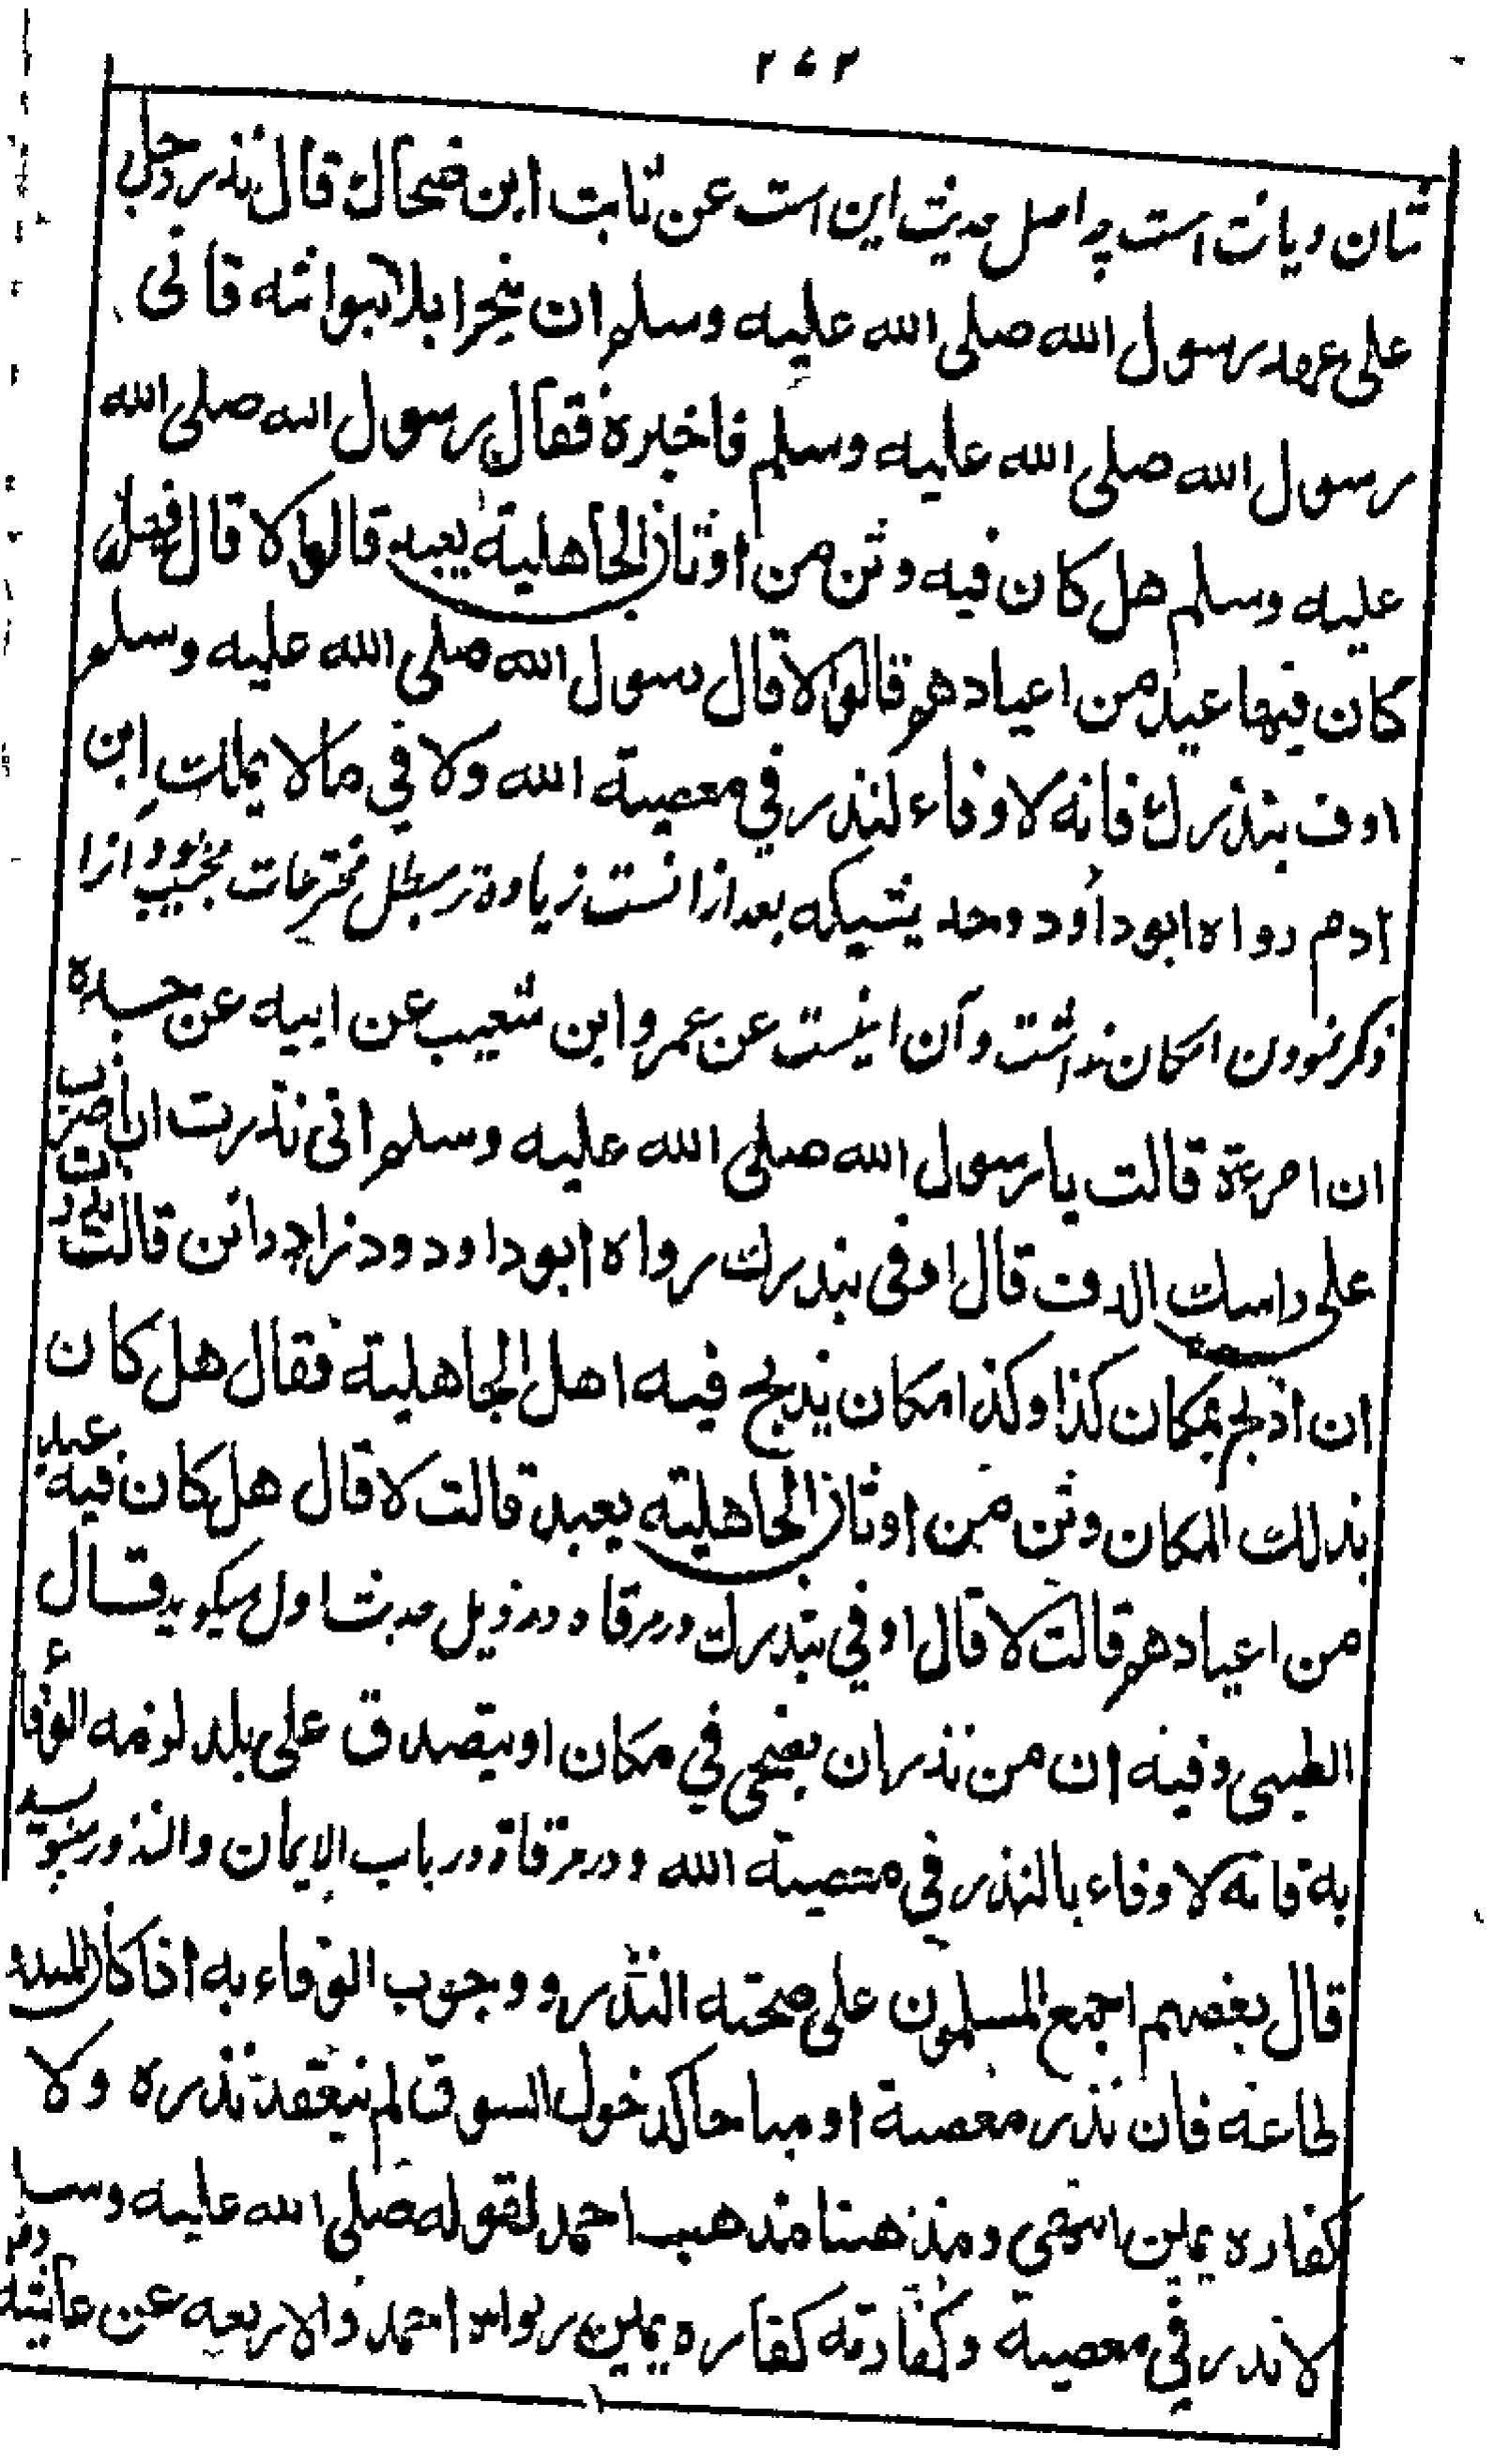 ۲۷۲
شان دیانت است چه اصل حدیث این است عن ثابت ابن ضحاك قال نذر رجل
علی عهد رسول الله صلی الله علیه وسلم ان ینحر ابلا ببوانه فاتی
رسول الله صلی الله علیه وسلم فاخبره فقال رسول الله صلی الله
علیه وسلم هل كان فیه وثن من اوثان الجاهلیة یعبد قالوا لا قال فهل
كان فیها عید من اعیادهم قالوا لا قال رسول الله صلی الله علیه وسلم
اوف بنذرك فانه لا وفاء لنذر فی معصیة الله ولا فی ما لا یملك ابن
ادم رواه ابوداؤد وحدیثیکه بعد ازانست زیاده تر مبطل مخترعات مجیب بود ازا
ذکر نمودن امکان نداشت و آن اینست عن عمرو ابن شعیب عن ابیه عن جده
ان امرءة قالت یا رسول الله صلی الله علیه وسلم انی نذرت ان اضرب
علی راسك الدف قال اوفی بنذرك رواه ابوداود وزاد رزین قالت و نذرت
ان اذبح بمكان كذا وكذا مكان یذبح فیه اهل الجاهلیة فقال هل كان
بذلك المكان وثن من اوثان الجاهلیة یعبد قالت لا قال هل كان فیه عید
من اعیادهم قالت لا قال اوفی بنذرك ودر مرقاه در ذیل حدیث اول میگوید قال
الطیبی وفیه ان من نذر ان یضحی فی مكان او یتصدق علی بلد لزمه الوفاء
به فانه لا وفاء بالنذر فی معصیة الله ودر مرقاة در باب الایمان والنذور مینویسد
قال بعضهم اجمع المسلمون علی صحته النذر ووجوب الوفاء به اذا كان المنذور
طاعة فان نذر معصیة او مباحا كدخول السوق لم ینعقد نذره ولا
كفاره یمین انتهی ومذهبنا مذهب احمد لقوله صلی الله علیه وسلم
لا نذر فی معصیة وكفارته كفاره یمین رواه احمد والاربعه عن عایشه